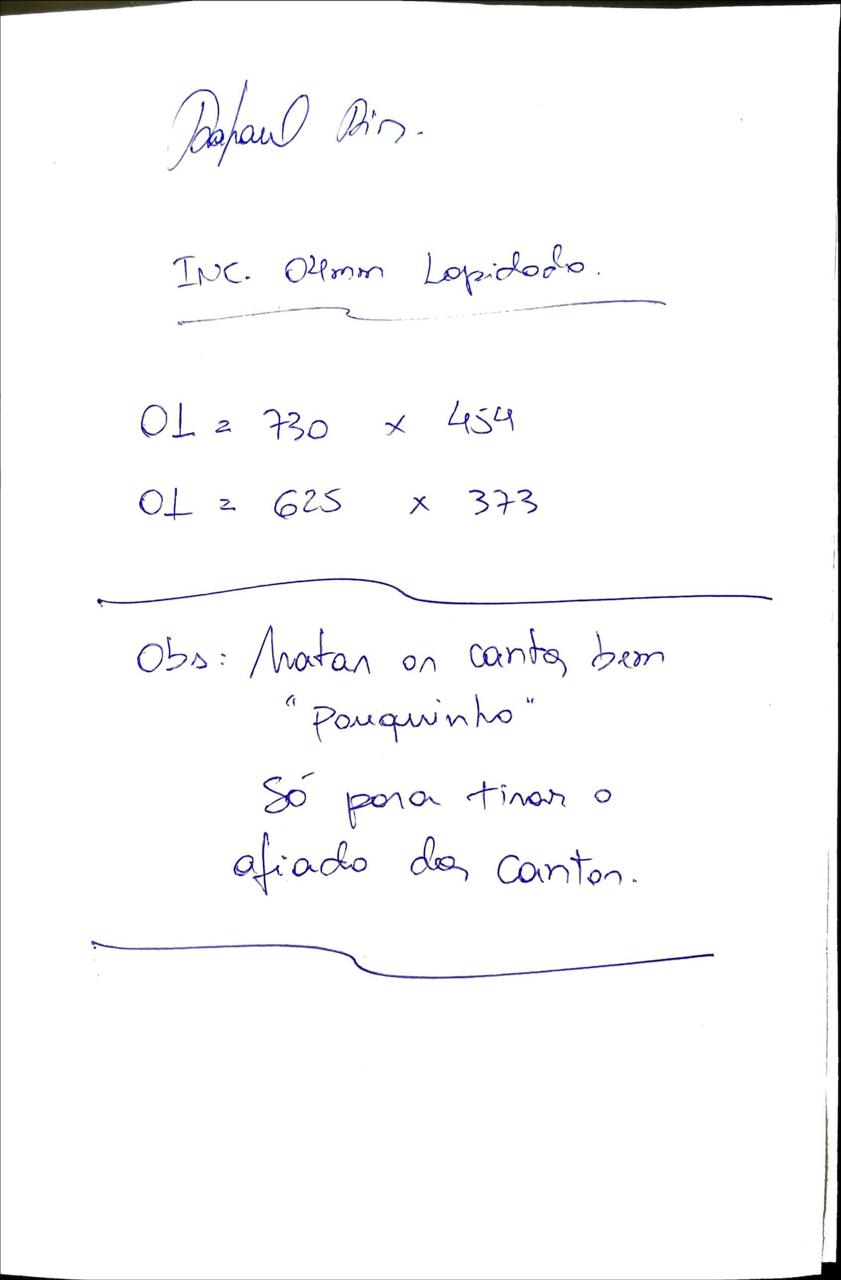 Rafael
INC. 04mm Lapidado.
01 = 730 x 454
01 = 625 x 373
Obs: Matar os cantos bem
"Pouquinho"
Só para tirar o
afiado dos cantos.